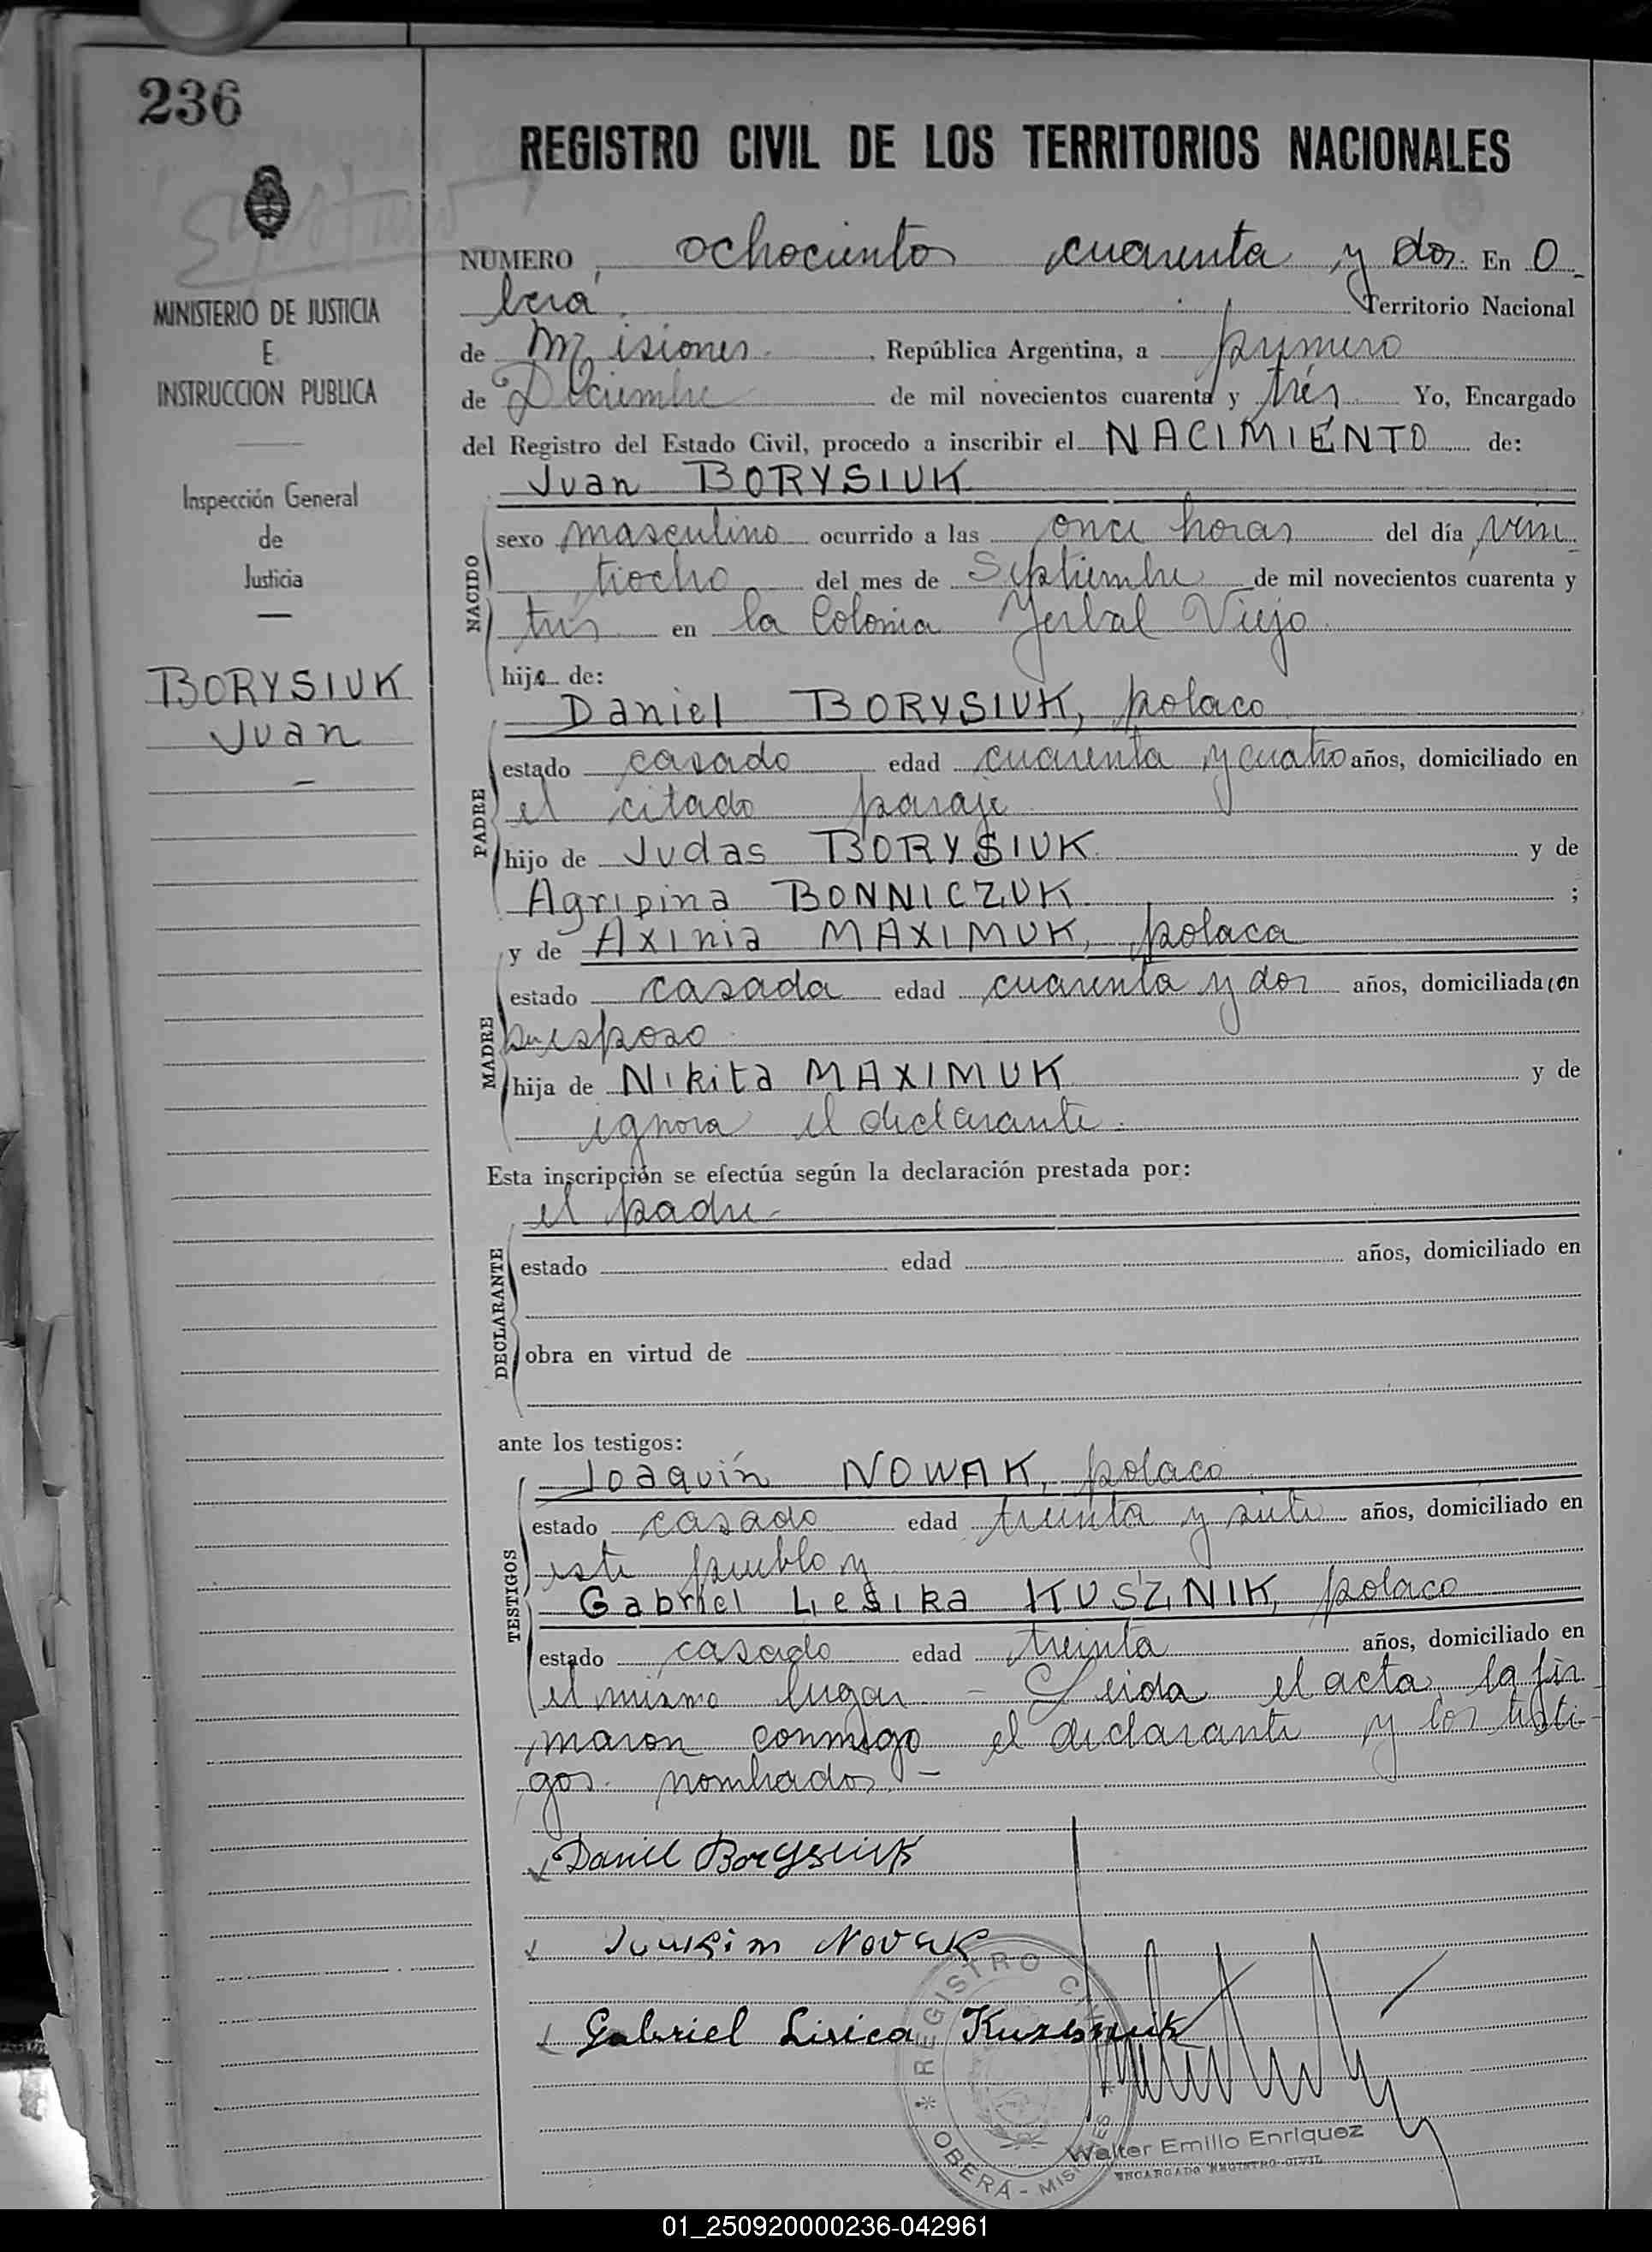 236
REGISTRO CIVIL DE LOS TERRITORIOS NACIONALES
MINISTERIO DE JUSTICIA
E
INSTRUCCION PUBLICA
Inspección General
de
Justicia
BORYSIUK
Juan
NUMERO ochocientos cuarenta y dos. En O-
berá. Territorio Nacional
de Misiones. República Argentina, a primero
de Diciembre de mil novecientos cuarenta y trés Yo, Encargado
del Registro del Estado Civil, procedo a inscribir el NACIMIENTO de:
Juan BORYSIUK
NACIDO
sexo masculino ocurrido a las once horas del día vein-
tiocho del mes de Septiembre de mil novecientos cuarenta y
tres en la Colonia Yerbal Viejo.
hijo de:
Daniel BORYSIUK, polaco
PADRE
estado casado edad cuarenta y cuatro años, domiciliado en
el citado paraje
hijo de Judas BORYSIUK y de
Agripina BONNICZUK. ;
y de Axinia MAXIMUK, polaca
MADRE
estado casada edad cuarenta y dos años, domiciliada con
su esposo.
hija de Nikita MAXIMUK y de
ignora el declarante.
Esta inscripción se efectúa según la declaración prestada por:
el padre
DECLARANTE
estado edad años, domiciliado en
obra en virtud de
ante los testigos:
Joaquín NOWAK, polaco
TESTIGOS
estado casado edad treinta y siete años, domiciliado en
este pueblo y
Gabriel Liesika KUSZNIK, polaco
estado casado edad treinta años, domiciliado en
el mismo lugar - Leida el acta, la fir
maron conmigo el declarante y los testi-
gos nombrados. -
Daniel Borysiuk
Novak
Gabriel Lisica
REGISTRO CIVIL
OBERÁ - MISIONES
Walter Emilio Enriquez
ENCARGADO REGISTRO CIVIL
01_250920000236-042961